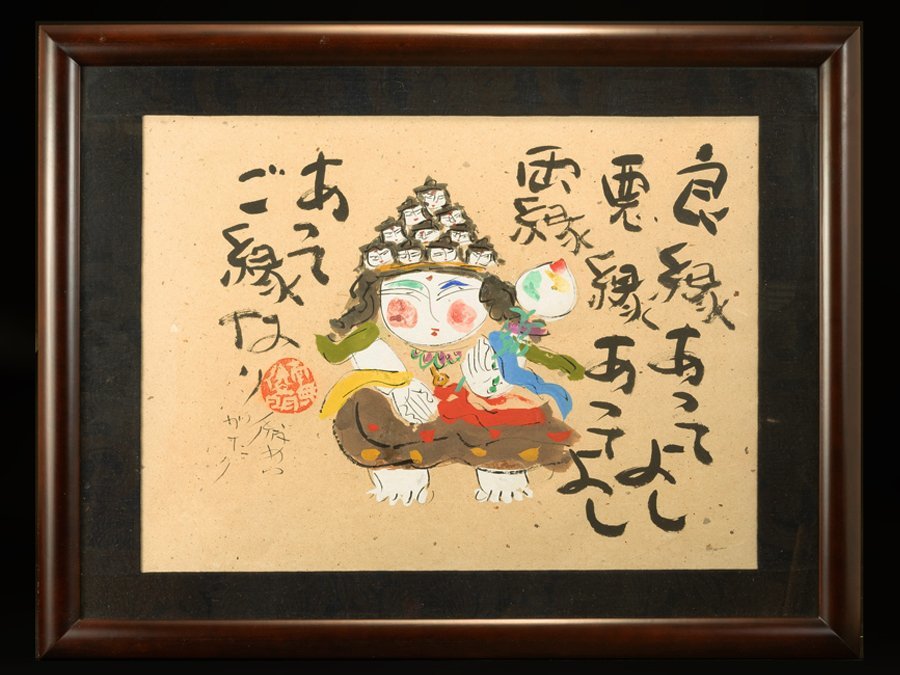 良縁あってよし
悪縁あってよし
両縁
あって
ご縁なり